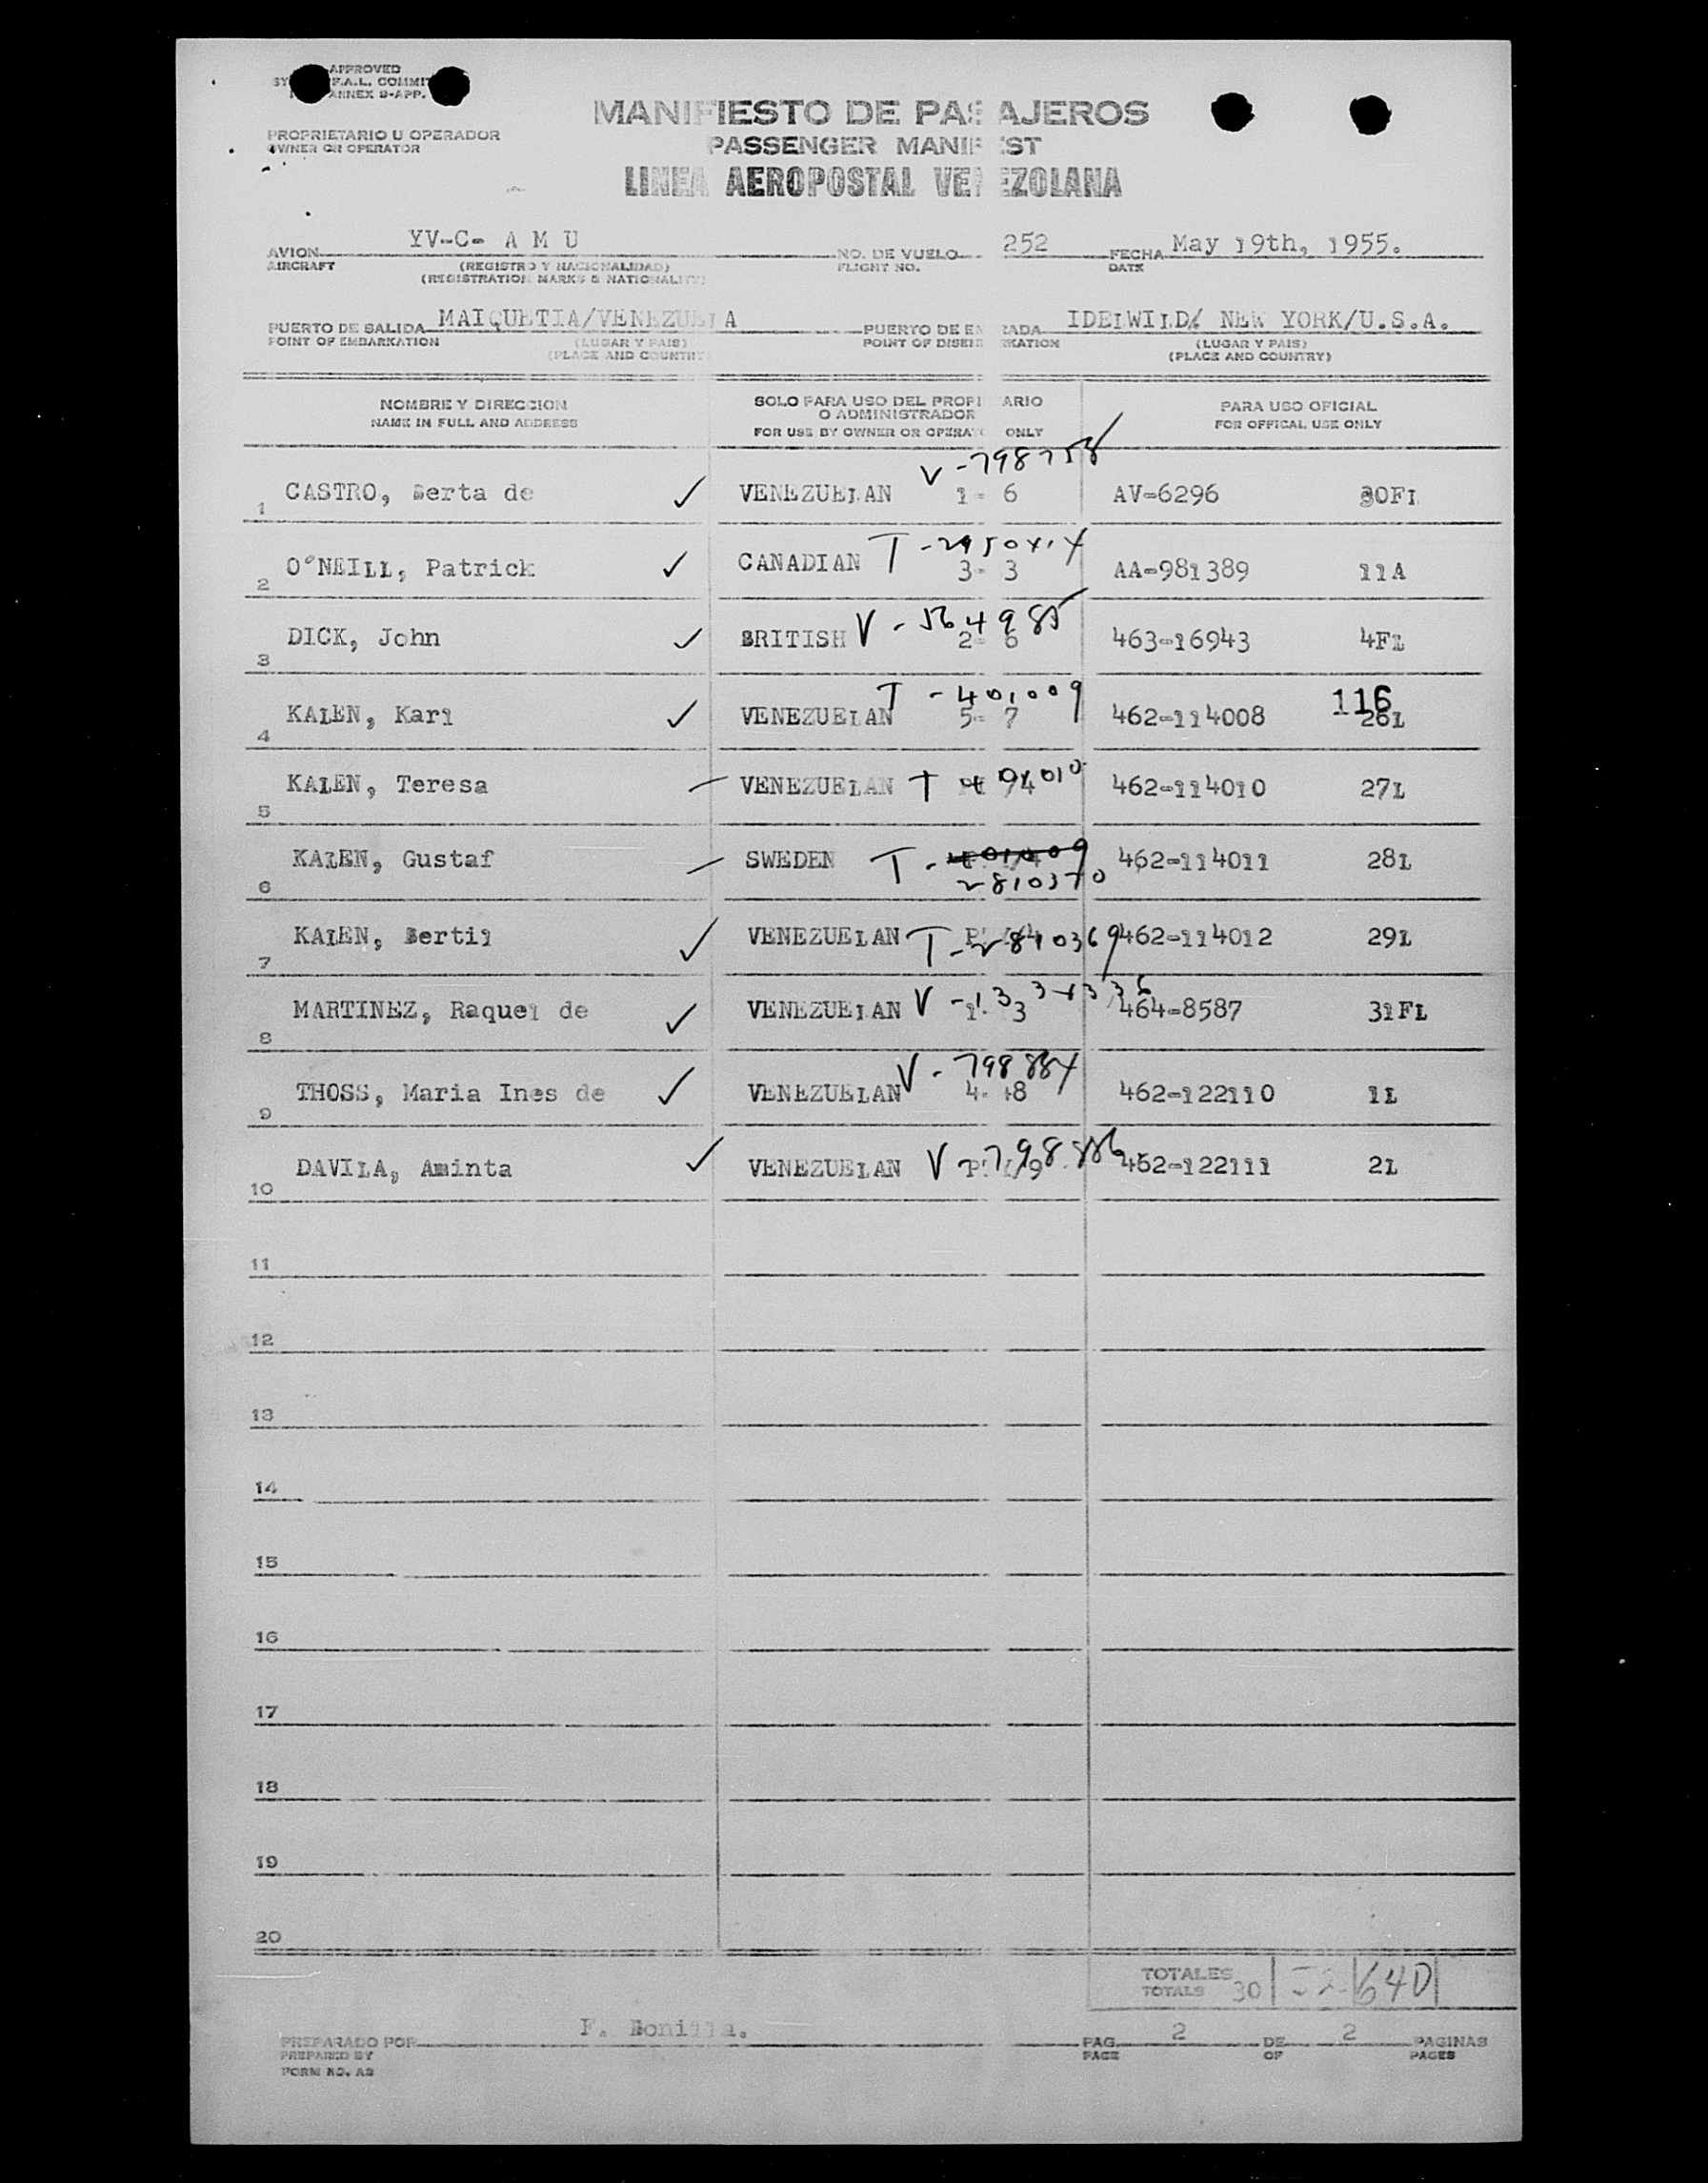 APPROVED
F.A.L. COMMIT
ANNEX 9-APP.
PROPRIETARIO U OPERADOR
OWNER OR OPERATOR
MANIFIESTO DE PASAJEROS
PASSENGER MANIFEST
LINEA AEROPOSTAL VENEZOLANA
AVION YV-C- A M U NO. DE VUELO 252 FECHA May 19th, 1955.
AIRCRAFT (REGISTRO Y NACIONALIDAD) FLIGHT NO. DATE
(REGISTRATION MARKS & NATIONALITY)
PUERTO DE SALIDA MAIQUETIA/VENEZUELA PUERTO DE ENTRADA IDELWILD/ NEW YORK/U.S.A.
POINT OF EMBARKATION (LUGAR Y PAIS) POINT OF DISEMBARKATION (LUGAR Y PAIS)
(PLACE AND COUNTRY) (PLACE AND COUNTRY)
NOMBRE Y DIRECCION SOLO PARA USO DEL PROPIETARIO PARA USO OFICIAL
NAME IN FULL AND ADDRESS O ADMINISTRADOR FOR OFFICAL USE ONLY
FOR USE BY OWNER OR OPERATOR ONLY
V-798758
1 CASTRO, Berta de ✓ VENEZUELAN 1- 6 AV-6296 30FL
2 O'NEILL, Patrick ✓ CANADIAN T- 3- 3 AA-981389 11A
3 DICK, John ✓ BRITISH V-564985 2- 6 463-16943 4FL
T-401009 116
4 KALEN, Karl ✓ VENEZUELAN 5- 7 462-114008 26L
5 KALEN, Teresa VENEZUELAN T 462-114010 27L
6 KALEN, Gustaf SWEDEN T-401009 462-114011 28L
2810370
7 KALEN, Bertil ✓ VENEZUELAN T-2810369 462-114012 29L
8 MARTINEZ, Raquel de ✓ VENEZUELAN V- 464-8587 31FL
V-798884
9 THOSS, Maria Ines de ✓ VENEZUELAN 4- 48 462-122110 1L
10 DAVILA, Aminta ✓ VENEZUELAN V-798886 462-122111 2L
11
12
13
14
15
16
17
18
19
20
TOTALES
TOTALS 30 52 640
PREPARADO POR F. Bonilla. PAG. 2 DE 2 PAGINAS
PREPARED BY PAGE OF PAGES
FORM NO. A3